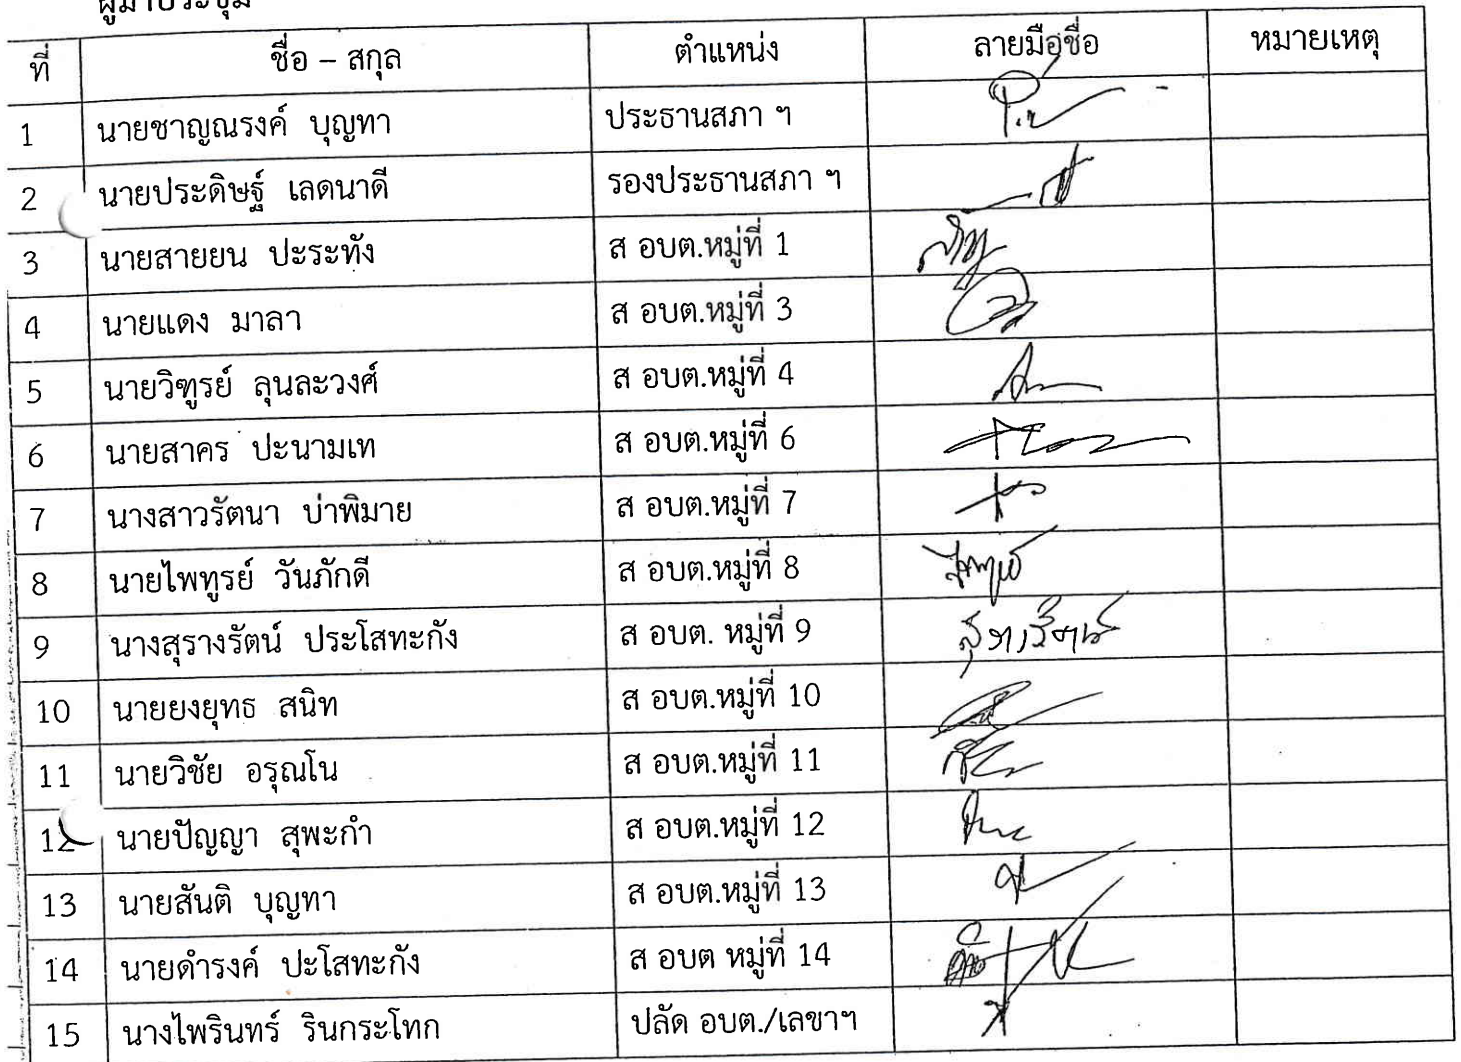 ผู้มาประชุม
ที่ ชื่อ – สกุล ตำแหน่ง ลายมือชื่อ หมายเหตุ
1 นายชาญณรงค์ บุญทา ประธานสภา ฯ
2 นายประดิษฐ์ เลดนาดี รองประธานสภา ฯ
3 นายสายยน ปะระทัง ส อบต.หมู่ที่ 1
4 นายแดง มาลา ส อบต.หมู่ที่ 3
5 นายวิฑูรย์ ลุนละวงศ์ ส อบต.หมู่ที่ 4
6 นายสาคร ปะนามเท ส อบต.หมู่ที่ 6
7 นางสาวรัตนา บ่าพิมาย ส อบต.หมู่ที่ 7
8 นายไพทูรย์ วันภักดี ส อบต.หมู่ที่ 8
9 นางสุรางรัตน์ ประโสทะกัง ส อบต. หมู่ที่ 9 สุรางรัตน์
10 นายยงยุทธ สนิท ส อบต.หมู่ที่ 10
11 นายวิชัย อรุณโน ส อบต.หมู่ที่ 11
12 นายปัญญา สุพะกำ ส อบต.หมู่ที่ 12
13 นายสันติ บุญทา ส อบต.หมู่ที่ 13
14 นายดำรงค์ ปะโสทะกัง ส อบต หมู่ที่ 14
15 นางไพรินทร์ รินกระโทก ปลัด อบต./เลขาฯ